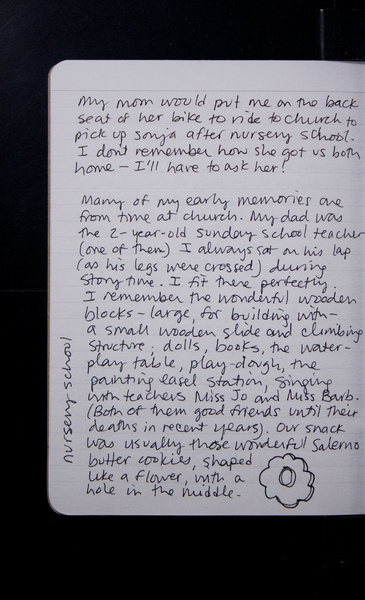 My mom would put me on the back
seat of her bike to ride to church to
pick up Sonja after nursery school.
I don't remember how she got us both
home – I'll have to ask her!
Many of my early memories are
from time at church. My dad was
the 2-year-old Sunday School teacher
(one of them) I always sat on his lap
(as his legs were crossed) during
storytime. I fit there perfectly.
I remember the wonderful wooden
blocks – large, for building with –
a small wooden slide and climbing
structure, dolls, books, the water-
play table, play-dough, the
painting easel station, singing
with teachers Miss Jo and Miss Barb.
(Both of them good friends until their
deaths in recent years). Our snack
was usually those wonderful Salerno
butter cookies, shaped
like a flower, with a
hole in the middle.
nursery school